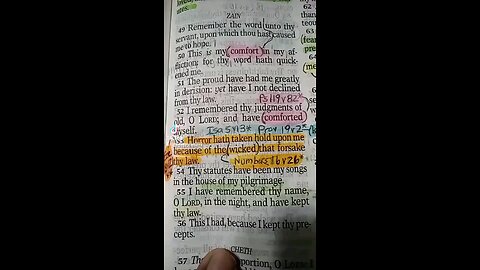 ZAIN
49 Remember the word unto thy
servant, upon which thou hast caused
me to hope.
50 This is my comfort in my af-
fliction: for thy word hath quick-
ened me.
51 The proud have had me greatly
in derision: yet have I not declined
from thy law. Ps 119 v 82*
52 I remembered thy judgments of
old, O LORD; and have comforted
myself. Isa 5 v 13* Prov 19 v 2*
53 Horror hath taken hold upon me
because of the wicked that forsake
thy law. Numbers 16 v 26*
54 Thy statutes have been my songs
in the house of my pilgrimage.
55 I have remembered thy name,
O LORD, in the night, and have kept
thy law.
56 This I had, because I kept thy pre-
cepts.
CHETH
57 portion, O LORD: I
62